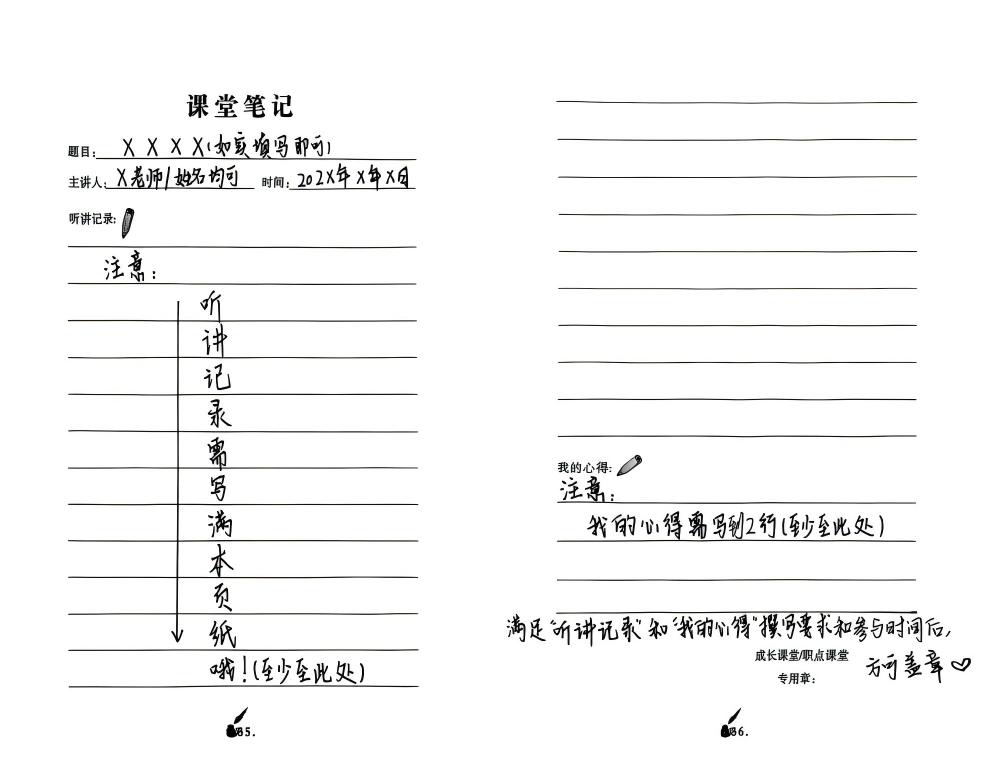 课堂笔记
题目: X X X X(如实填写即可)
主讲人: X老师/姓名均可 时间: 202X年X年X日
听讲记录:
注意:
听
讲
记
录
需
写
满
本
页
纸
哦!(至少至此处)
35.
我的心得:
注意:
我的心得需写到2行(至少至此处)
满足“听讲记录”和“我的心得”撰写要求和参与时间后,
成长课堂/职点课堂
方可盖章♡
专用章:
36.